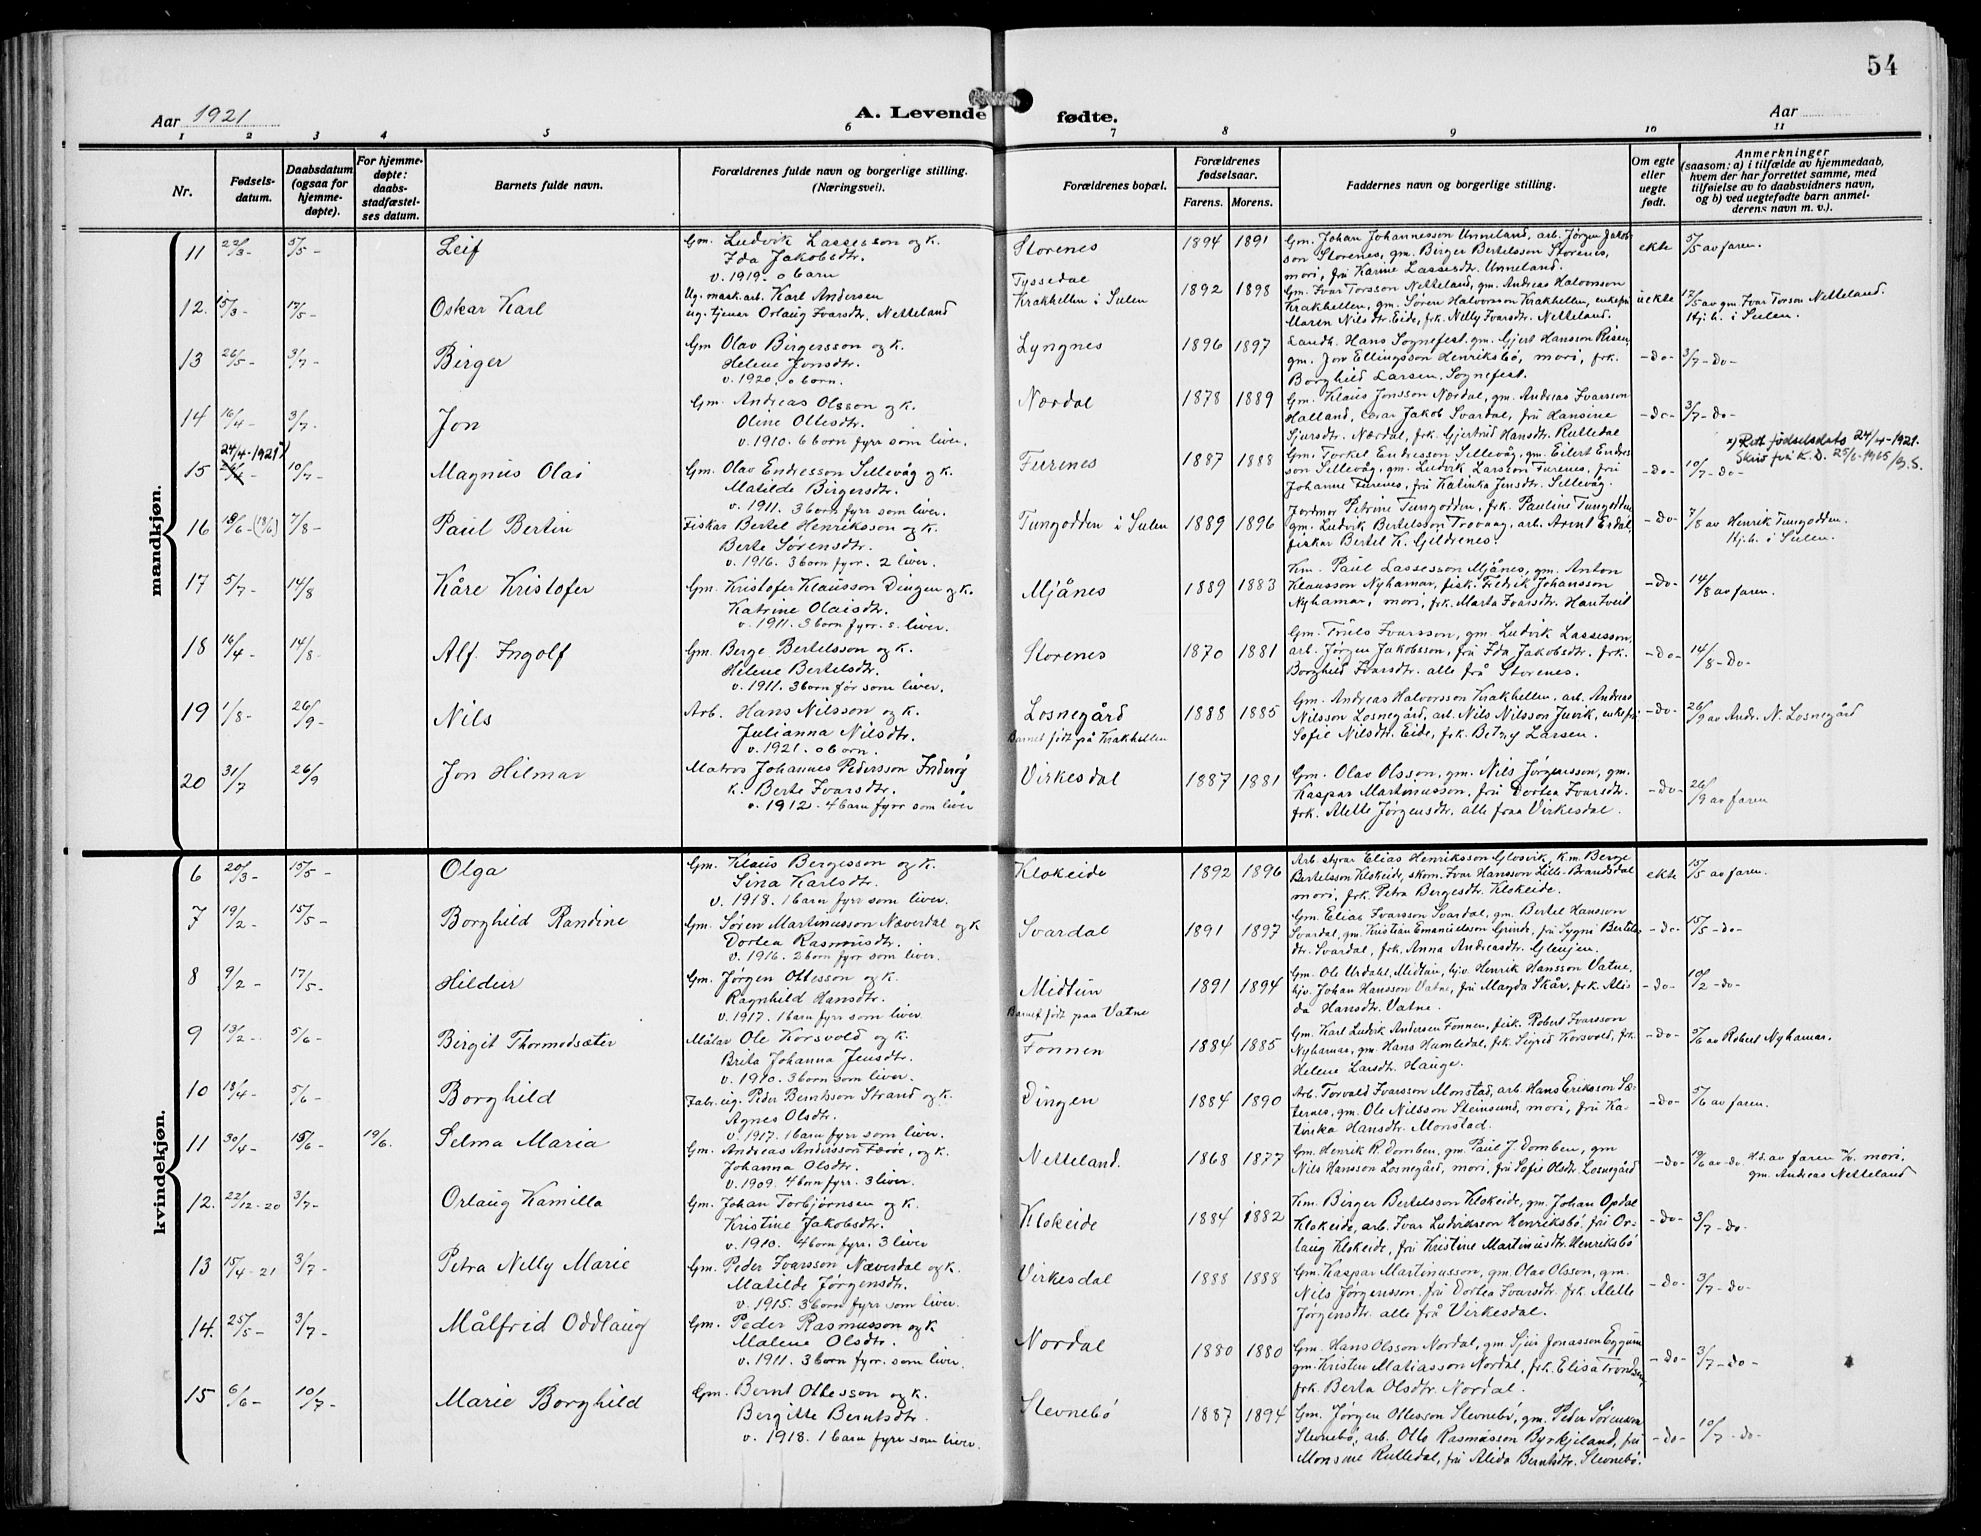 54
Aar 1921
A. Levende fødte.
Aar
1 2 3 4 5 6 7 8 9 10 11
Nr.
Fødsels-
datum.
Daabsdatum
(ogsaa for
hjemme-
døpte).
For hjemme-
døpte:
daabs-
stadfæstel-
ses datum.
Barnets fulde navn.
Forældrenes fulde navn og borgerlige stilling.
(Næringsvei).
Forældrenes bopæl.
Forældrenes
fødselsaar.
Farens. Morens.
Faddernes navn og borgerlige stilling.
Om egte
eller
uegte
født.
Anmerkninger
(saasom: a) i tilfælde av hjemmedaab,
hvem der har forrettet samme, med
tilføielse av to daabsvidners navn,
og b) ved uegtefødte barn anmel-
derens navn m. v.).
mandkjøn.
11 22/3- 5/5- Leif
Gm. Ludvik Lassesson og k.
Ida Jakobsdtr.
v. 1919. 0 barn
Storenes 1894 1891
Gm. Johan Johannesson Unneland, arb. Jørgen Jakob-
son Storenes, gm. Birger Bertelsson Storenes,
mori, fru Karine Lassesdtr. Unneland.
ekte 5/5 av faren.
12. 15/3- 17/5- Oskar Karl
Ug. mask.arb. Karl Andersen
ug. tjenar Orlaug Ivarsdtr. Netteland
Tyssedal
Krakhellen i Sulen 1892 1898
Gm. Ivar Torsson Netteland, gm. Andreas Halvorsson
Krakhellen, gm. Søren Halvorsson Krakhellen, enkefru
Maren Nilsdtr. Eide, frk. Nelly Ivarsdtr. Netteland.
uekte 17/5 av gm. Ivar Torson Netteland.
Hj.h. i Sulen.
13 26/5- 3/7- Birger
Gm Olav Birgersson og k.
Helene Jonsdtr.
v. 1920. 0 born.
Lyngnes 1896 1897
Landh. Hans Sognefest. gm. Gjert Hansson Risen,
gm. Jon Ellingsson Henriksbø, mori, frk.
Borghild Larsen, Sognefest.
-do- 3/7-do-
14 16/4- 3/7. Jon
Gm. Andreas Olsson og k.
Oline Ottesdtr.
v. 1910. 6 born fyrr som liver.
Nærdal 1878 1889
Gm. Klaus Jonsson Nærdal, gm. Andreas Ivarson
Halland, Jakob Svardal, fru Hansine
Sjursdtr. Nærdal, frk. Gjertrud Hansdtr. Rutledal
-do- 3/7-do-
x) Rett fødselsdato 24/4-1921.
Skriv frå K.D. 25/6-1965/B.S.
24/4-1921x)
15 10/7- Magnus Olai
Gm. Olav Endresson Sellevåg og k.
Matilde Birgersdtr.
v. 1911. 3 born fyrr som liver.
Furenes 1887 1888
Gm. Torkel Endresson Sellevåg, gm. Eilert Endres-
son Sellevåg, gm. Ludvik Larsson Furenes, fru
Johanne Furenes, fru Katinka Jensdtr. Sellevåg.
-do- 10/7-do-
16 18/6-(13/6) 7/8- Paul Bertin
Fiskar Bertel Henriksson og k.
Berte Sørensdtr.
v. 1916. 3 born fyrr. 2 liver.
Tungodden i Sulen 1889 1896
Jordmor Petrine Tungodden, frk. Pauline Tungodden,
gm. Ludvik Bertelsson Trovaag, arb. Arnt Eidal,
fiskar Bertel K. Gildrenes.
-do- 7/8 av Henrik Tungodden.
Hj.h. i Sulen.
17 5/7- 14/8 Kåre Kristofer
Gm. Kristofer Klausson Dingen og k.
Katrine Olaisdtr.
v. 1911. 3 born fyrr. s. liver.
Mjånes 1889 1883
Km. Paul Lassesson Mjånes, gm. Anton
Klausson Nyhamar, fisk. Fredrik Johansson
Nyhamar, mori, frk. Marta Ivarsdtr. Hantveit
-do- 14/8 av faren.
18 16/4- 14/8- Alf Ingolf
Gm. Berge Bertelsson og k.
Helene Bertelsdtr.
v. 1911. 3 born før som liver.
Storenes 1870 1881
Gm. Truls Ivarsson, gm. Ludvik Lassesson,
arb. Jørgen Jakobsson, fru Ida Jakobsdtr. frk.
Borghild Ivarsdtr. alle frå Storenes.
-do- 14/8-do-
19 1/8- 26/9- Nils
Arb. Hans Nilsson og k.
Julianna Nilsdtr.
v. 1921. 0 born.
Losnegård
Barnet født på Krakhellen 1888 1885
Gm. Andreas Halvorsson Krakhellen, arb. Andreas
Nilsson Losnegård, arb. Nils Nilsson Juvik, enkefru
Sofie Nilsdtr. Eide, frk. Betzy Larsen.
-do- 26/9 av Andr. N. Losnegård
20 31/7 26/9 Jon Hilmar
Matros Johannes Pedersson Inderøy
k. Berte Ivarsdtr.
v. 1912. 4 barn fyrr som liver
Virkesdal 1887 1881
Gm. Olav Olsson, gm. Nils Jørgensson, gm.
Kaspar Martinusson, fru Dortea Ivarsdtr.
frk. Alette Jørgensdtr. alle fraa Virkesdal.
-do- 26/9 av faren
kvindekjøn.
6 20/3- 15/5- Olga
Gm. Klaus Bergesson og k.
Sina Karlsdtr.
v. 1918. 1 barn fyrr som liver.
Klokeide 1892 1896
Arb. styrar Elias Henriksson Glosvik, k.m. Berge
Bertelsson Klokeide, skom. Ivar Hansson Lille-Brandsdal
mori, frk. Petra Bergesdtr. Klokeide.
ekte 15/5 av faren.
7 19/2- 15/5- Borghild Randine
Gm. Søren Martinusson Næverdal og k
Dortea Rasmusdtr.
v. 1916. 2 born fyrr som liver.
Svardal 1891 1897
Gm. Elias Ivarsson Svardal, gm. Bertel Hansson
Svardal, gm. Kristian Emanuelsson Grinde, fru Sygni Bertels-
dtr. Svardal, frk. Anna Andreasdtr. Glenjen.
-do- 15/5-do-
8 9/2- 17/5- Hildur
Gm. Jørgen Ottesson og k.
Ragnhild Hansdtr.
v. 1917. 1 barn fyrr som liver.
Midtun
Barnet født paa Vatne 1891 1894
Gm. Ole Urdahl, Midtun, hjv. Henrik Hansson Vatne,
hjv. Johan Hansson Vatne, fru Magda Skår, frk. Ali-
da Hansdtr. Vatne.
-do- 10/2-do-
9 13/2- 5/6- Birgit Thormodsæter
Målar Ole Korsvold og k.
Brita Johanna Jensdtr.
v. 1910. 3 born som liver.
Fonnen 1884 1885
Gm. Karl Ludvik Andersen Fonnen, fisk. Robert Ivarsson
Nyhamar, gm. Hans Humledal, frk. Sigrid Korsvold, frk.
Helene Larsdtr. Hauge.
-do- 5/6 av Robert Nyhamar.
10 18/4- 5/6- Borghild
Fabr. eig. Peder Berntsson Strand og k.
Agnes Olsdtr.
v. 1917. 1 barn fyrr som liver.
Dingen 1884 1890
Arb. Torvald Ivarsson Monstad, arb. Hans Eriksson Sæ-
ternes, gm. Ole Nilsson Steinsund, mori, fru Ka-
tinka Hansdtr. Monstad.
-do- 5/6 av faren.
11 30/4- 15/6- 19/6. Selma Maria
Gm. Andreas Andersson Færøe, og k.
Johanna Olsdtr.
v. 1909. 4 born fyrr. 3 liver.
Netteland. 1868 1877
Gm. Henrik R. Domben, gm. Paul J. Domben, gm
Nils Hansson Losnegård, mori, fru Sofie Olsdtr. Losnegård
-do- 19/6 av do. H.d. av faren v. mori,
gm. Andreas Netteland
12. 22/12-20 3/7- Orlaug Kamilla
Gm. Johan Torbjørnsen og k.
Kristine Jakobsdtr.
v. 1910. 4 born fyrr. 3 liver
Klokeide 1884 1882
Km. Birger Bertelsson Klokeide, gm. Johan Opdal
Klokeide, arb. Ivar Ludviksson Henriksbø, fru Or-
laug Klokeide, fru Kristine Martinusdtr. Henriksbø
-do- 3/7-do-
13 15/4-21 3/7- Petra Nelly Marie
Gm. Peder Ivarsson Næverdal og k.
Matilde Jørgensdtr.
v. 1915. 3 born fyrr som liver.
Virkesdal 1888 1888
Gm. Kaspar Martinusson, gm. Olav Olsson, gm.
Nils Jørgensson, fru Dortea Ivarsdtr. frk. Alette
Jørgensdtr. alle frå Virkesdal.
-do- 3/7-do-
14. 25/5- 3/7- Målfrid Oddlaug
Gm. Peder Rasmusson og k
Malene Olsdtr.
v. 1911. 3 born fyrr. som liver.
Nordal 1880 1880
Gm. Hans Olsson Nordal, gm. Sjur Jonasson Eggum
gm. Kristen Matiasson Nordal, frk. Elisa Trondsen,
frk. Berta Olsdtr. Nordal.
-do- 3/7-do-
15 6/6- 10/7- Marie Borghild
Gm. Bernt Ottesson og k.
Bergitte Berntsdtr.
v. 1918. 1 barn fyrr som liver.
Stevnebø 1887 1894
Gm. Jørgen Ottesson Stevnebø, gm. Peder Sørensson
Stevnebø, arb. Otto Rasmusson Byrkjeland, fru
Monsine Rutledal, fru Alida Berntsdtr. Stevnebø.
-do- 10/7-do-